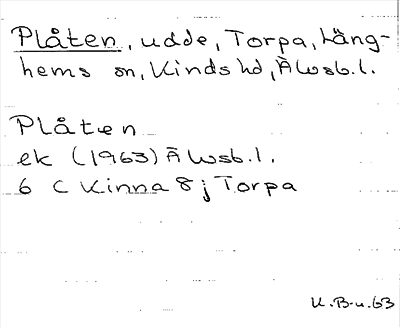 Plåten, udde, Torpa, Läng-
hems sn, Kinds hd, Älvsb. l.
Plåten
ek (1963) Älvsb. l.
6 C Kinna 8 j Torpa
U. B-u. 63